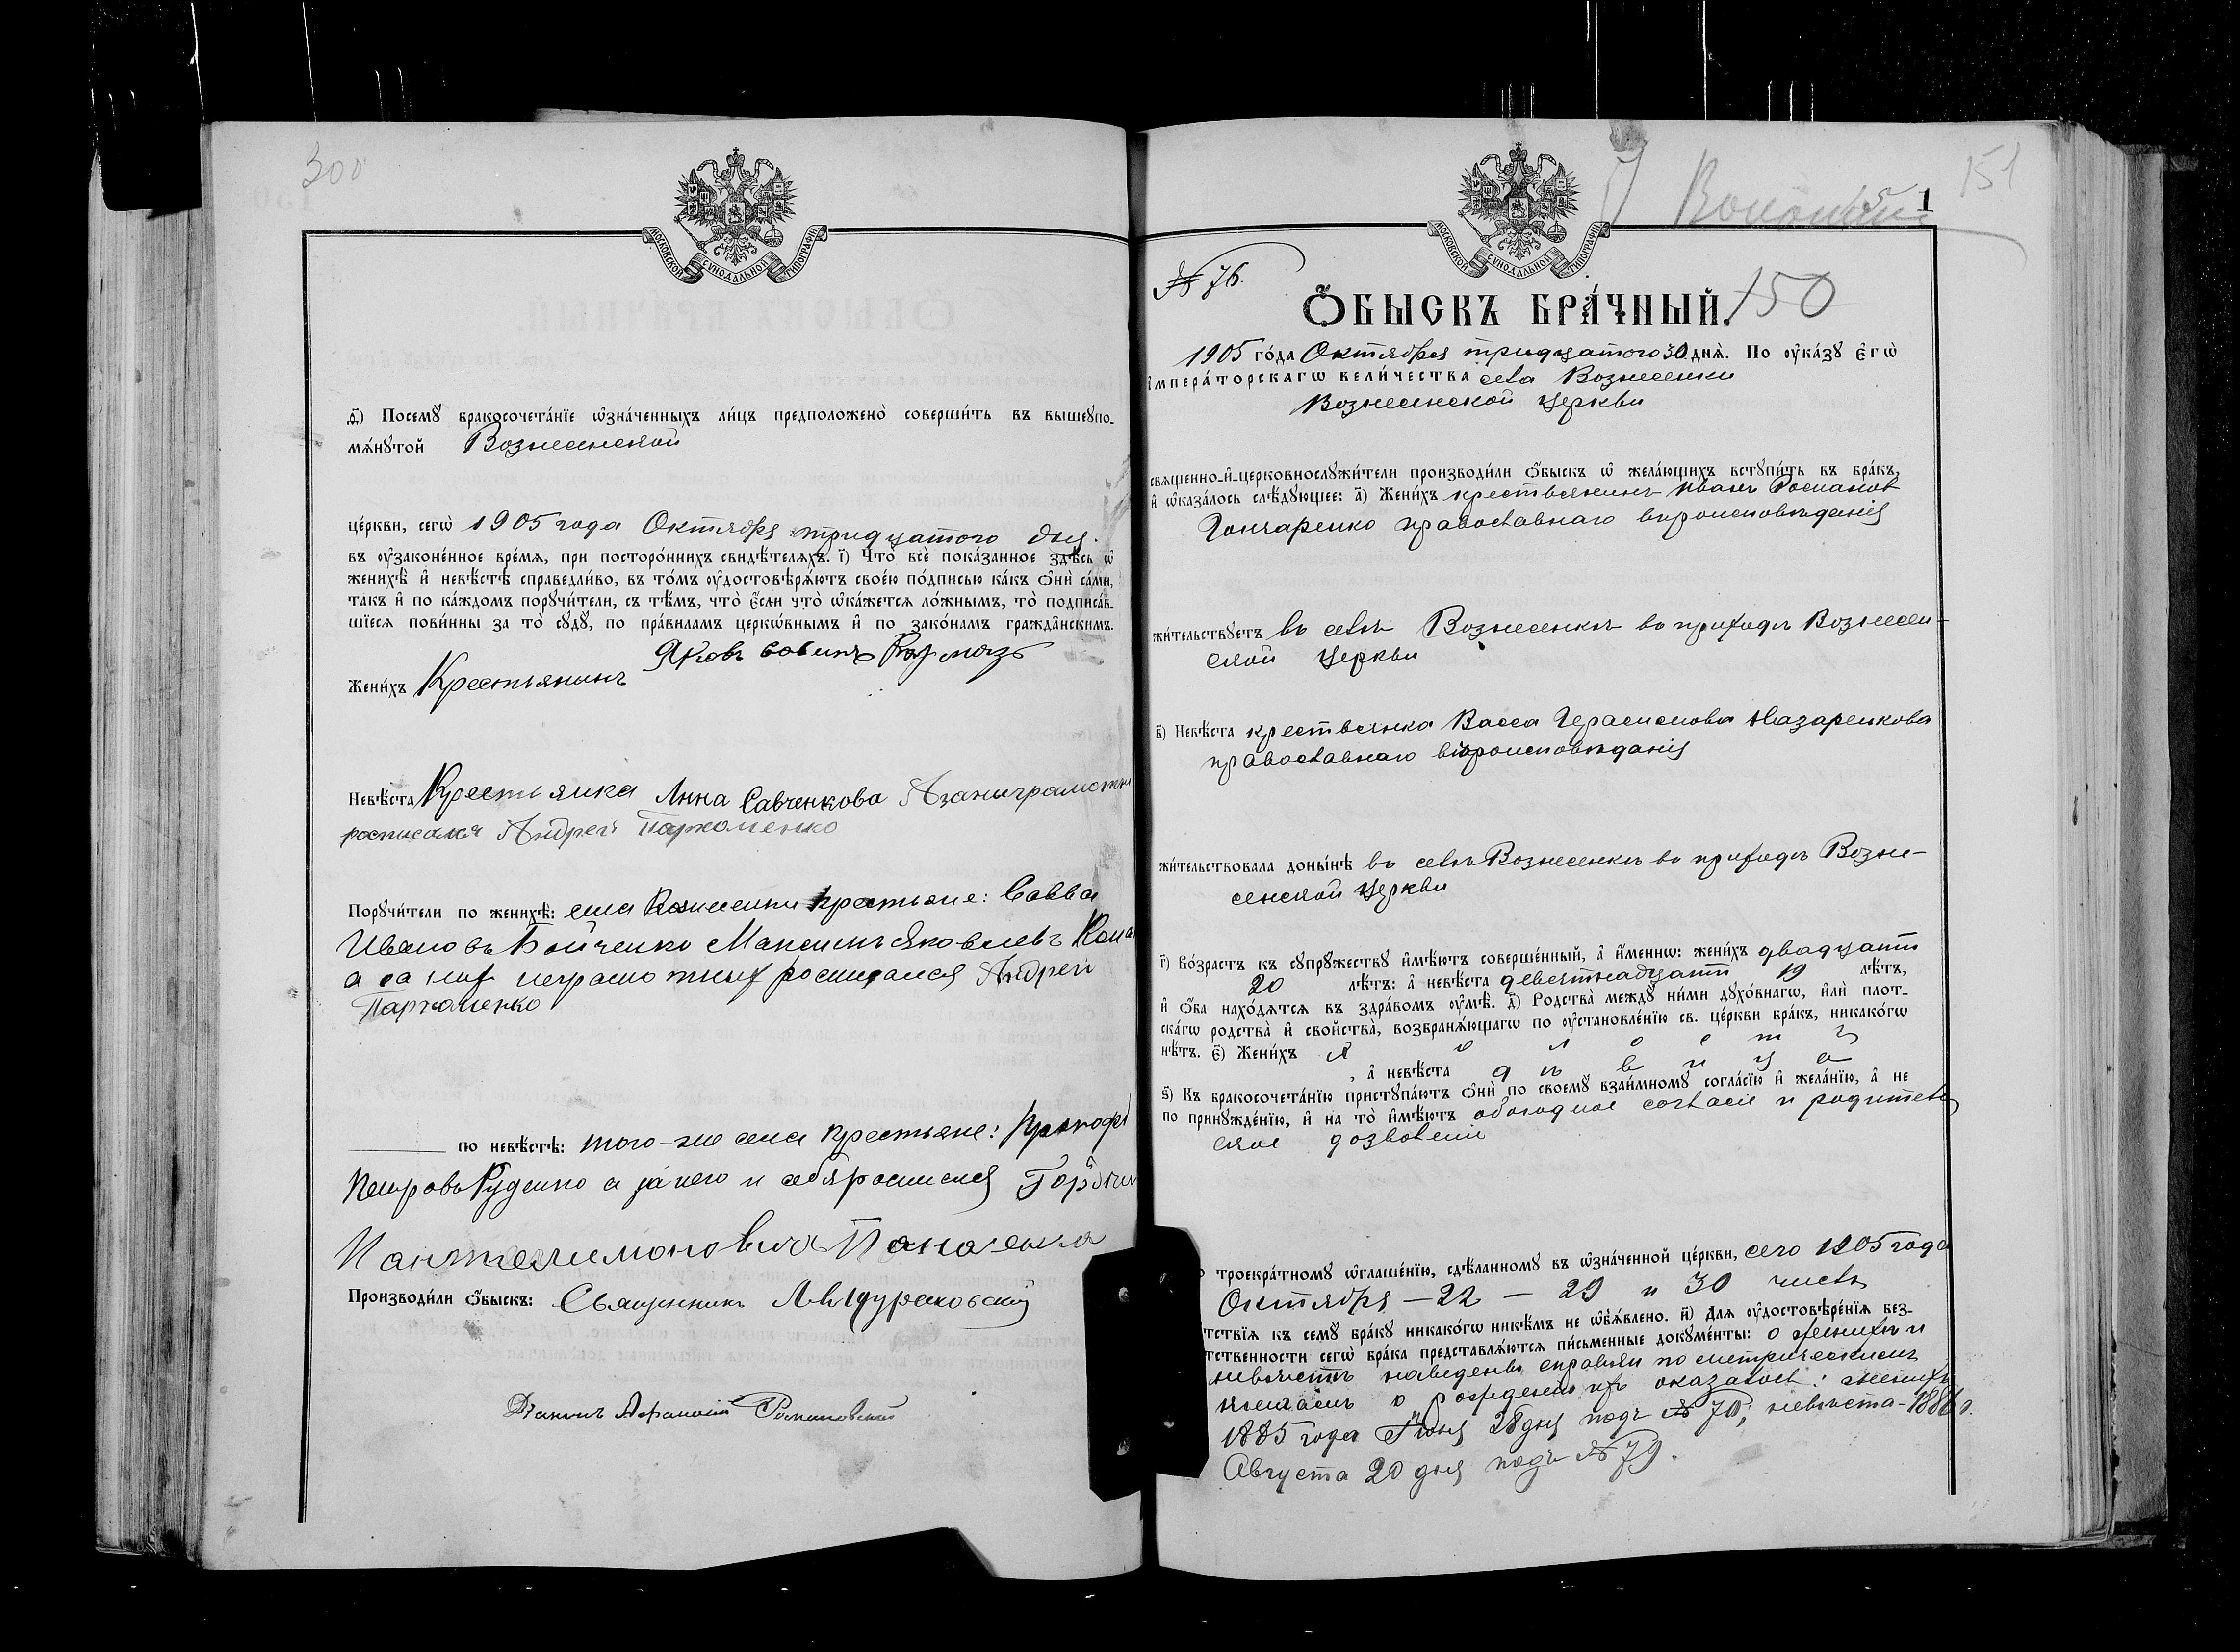 300
МОСКОВСКОЙ СѴНОДАЛЬНОЙ ТИПОГРАФІИ
ѳ҃) Посемꙋ̀ бракосочета́нїе ѡ҆зна́ченныхъ ли́цъ предположено̀ соверши́ть въ вышеꙋпо-
мѧ́нꙋтой Вознесенской
це́ркви, сегѡ̀ 1905 года Октября тридцатого дня.
въ ᲂу҆зако́ненное вре́мѧ, при посторо́ннихъ свидѣ́телѧхъ. і҃) Что̀ всѐ пока́занное здѣ́сь ѡ҆
женихѣ̀ и҆ невѣ́стѣ справедли́во, въ то́мъ ᲂу҆достовѣрѧ́ютъ свое́ю по́дписью ка́къ ѻ҆нѝ са́ми,
та́къ и҆ по ка́ждомъ порꙋчи́тели, съ тѣ́мъ, что̀ є҆́сли что̀ ѡ҆ка́жетсѧ ло́жнымъ, то̀ подписа́в-
шїесѧ пови́нны за то̀ сꙋдꙋ̀, по пра́виламъ церкѡ́внымъ и҆ по зако́намъ гражда̂нскимъ.
Яковъ
Жени́хъ Крестьянинъ
Невѣ́ста Крестьянка Анна Савченкова
росписался Андрей Пархоменко
Порꙋчи́тели по женихѣ̀: села Вознесенки крестьяне: Савва
Ивановъ Бойченко Максимъ Яковлевъ
а за них неграмотных росписался Андрей
Пархоменко
по невѣ́стѣ: того-же села крестьяне:
Петровъ Руденко а за него и себя росписался
Пантелимоновичъ
Производи́ли ѻ҆́быскъ: Священникъ
Діаконъ Афанасій Романовскій
151
1
МОСКОВСКОЙ СѴНОДАЛЬНОЙ ТИПОГРАФІИ
№ 76.
Ѻ҆́БЫСКЪ БРА́ЧНЫЙ. 150
1905 го́да Октября тридцатого 30 днѧ̀. По ᲂу҆ка́зꙋ є҆гѡ̀
і҆мпера́торскагѡ вели́чества села Вознесенки
Вознесенской церкви
свѧще́нно-и҆-церковнослꙋжи́тели производи́ли ѻ҆́быскъ ѡ҆ жела́ющихъ встꙋпи́ть въ бра́къ,
и҆ ѡ҆каза́лось слѣ́дꙋющее: а҃) Жени́хъ крестьянинъ Иванъ Романов
Гончаренко православнаго вѣроисповѣданія
жи́тельствꙋетъ въ селѣ Вознесенкѣ въ приходѣ Вознесен-
ской церкви
в҃) Невѣ́ста крестьянка Васса Герасимова Назаренкова
православнаго вѣроисповѣданія
жи́тельствовала доны́нѣ въ селѣ Вознесенкѣ въ приходѣ Возне-
сенской церкви
г҃) Во́зрастъ къ сꙋпрꙋ́жествꙋ и҆мѣ́ютъ соверше́нный, а҆ и҆́меннѡ: жени́хъ двадцати
20 лѣ́тъ: а҆ невѣ́ста девятнадцати 19 лѣ́тъ,
и҆ ѻ҆́ба нахо́дѧтсѧ въ здра́вомъ ᲂу҆мѣ̀. д҃) Родства̀ междꙋ̀ ни́ми дꙋхо́внагѡ, и҆лѝ плот-
ска́гѡ родства̀ и҆ свойства̀, возбранѧ́ющагѡ по ᲂу҆становле́нїю св. це́ркви бра́къ, никако́гѡ
нѣ́тъ. є҃) Жени́хъ холостъ
, а҆ невѣ́ста дѣвица
ѕ҃) Къ бракосочета́нїю пристꙋпа́ютъ ѻ҆нѝ по своемꙋ̀ взаи́мномꙋ согла́сїю и҆ жела́нїю, а҆ не
по принꙋжде́нїю, и҆ на то̀ и҆мѣ́ютъ обоюдное согласіе и родитель
ское дозволеніе
троекра́тномꙋ ѡ҆глаше́нїю, сдѣ́ланномꙋ въ ѡ҆зна́ченной це́ркви, сего 1905 года
Октября — 22 — 29 и 30 числъ
тствїѧ къ семꙋ̀ бра́кꙋ никако́гѡ никѣ́мъ не ѡ҆б̾ѧ́влено. и҃) Длѧ ᲂу҆достовѣре́нїѧ без-
тственности сегѡ̀ бра́ка представлѧ́ютсѧ пи́сьменные докꙋме́нты: о женихѣ и
невѣстѣ наведены справки по метрическимъ
книгамъ о рожденіи ихъ оказалось: женихъ
1885 года Іюня 28 дня подъ № 70, невѣста - 1886 г.
Августа 20 дня подъ № 79.